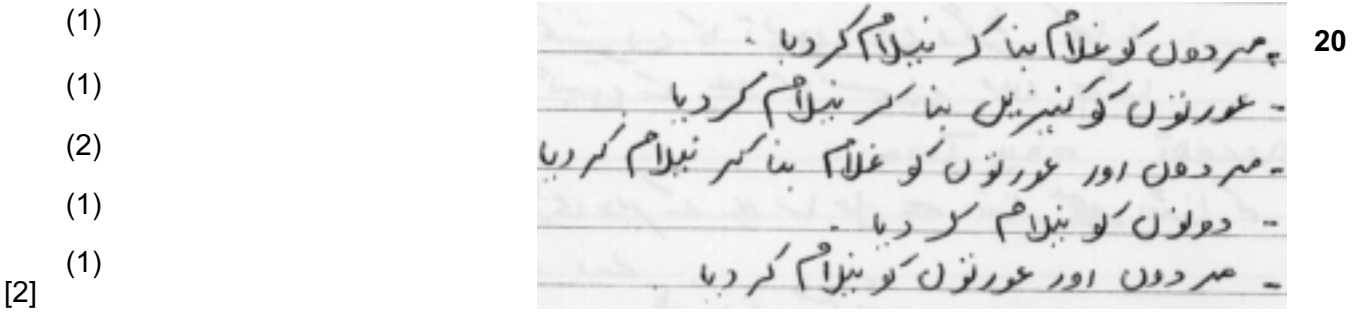 20 - مردوں کو غلام بنا کر نیلام کر دیا - (1)
- عورتوں کو کنیزیں بنا کر نیلام کر دیا (1)
- مردوں اور عورتوں کو غلام بنا کر نیلام کر دیا (2)
- دونوں کو نیلام کر دیا - (1)
- مردوں اور عورتوں کو نیلام کر دیا (1)
[2]